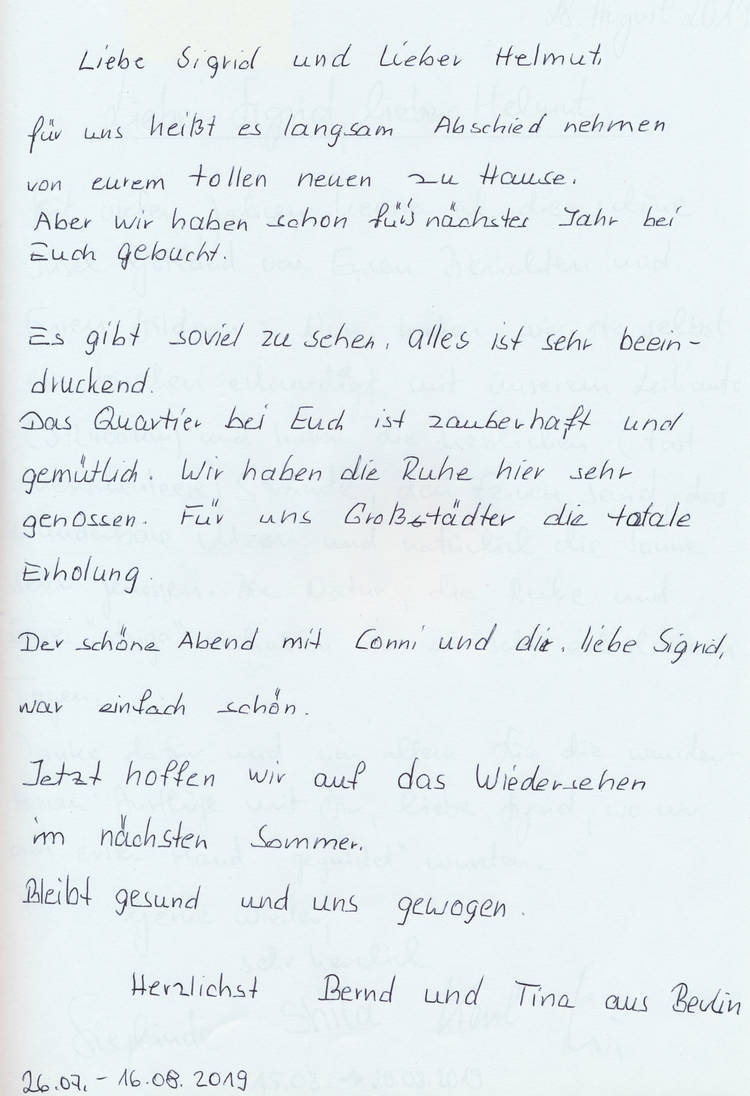 Liebe Sigrid und Lieber Helmut,
für uns heißt es langsam Abschied nehmen
von eurem tollen neuen zu Hause.
Aber wir haben schon für's nächstes Jahr bei
Euch gebucht.
Es gibt soviel zu sehen, alles ist sehr beein-
druckend.
Das Quartier bei Euch ist zauberhaft und
gemütlich. Wir haben die Ruhe hier sehr
genossen. Für uns Großstädter die totale
Erholung.
Der schöne Abend mit Conni und dir, liebe Sigrid,
war einfach schön.
Jetzt hoffen wir auf das Wiedersehen
im nächsten Sommer.
Bleibt gesund und uns gewogen.
Herzlichst Bernd und Tina aus Berlin
26.07. - 16.08. 2019